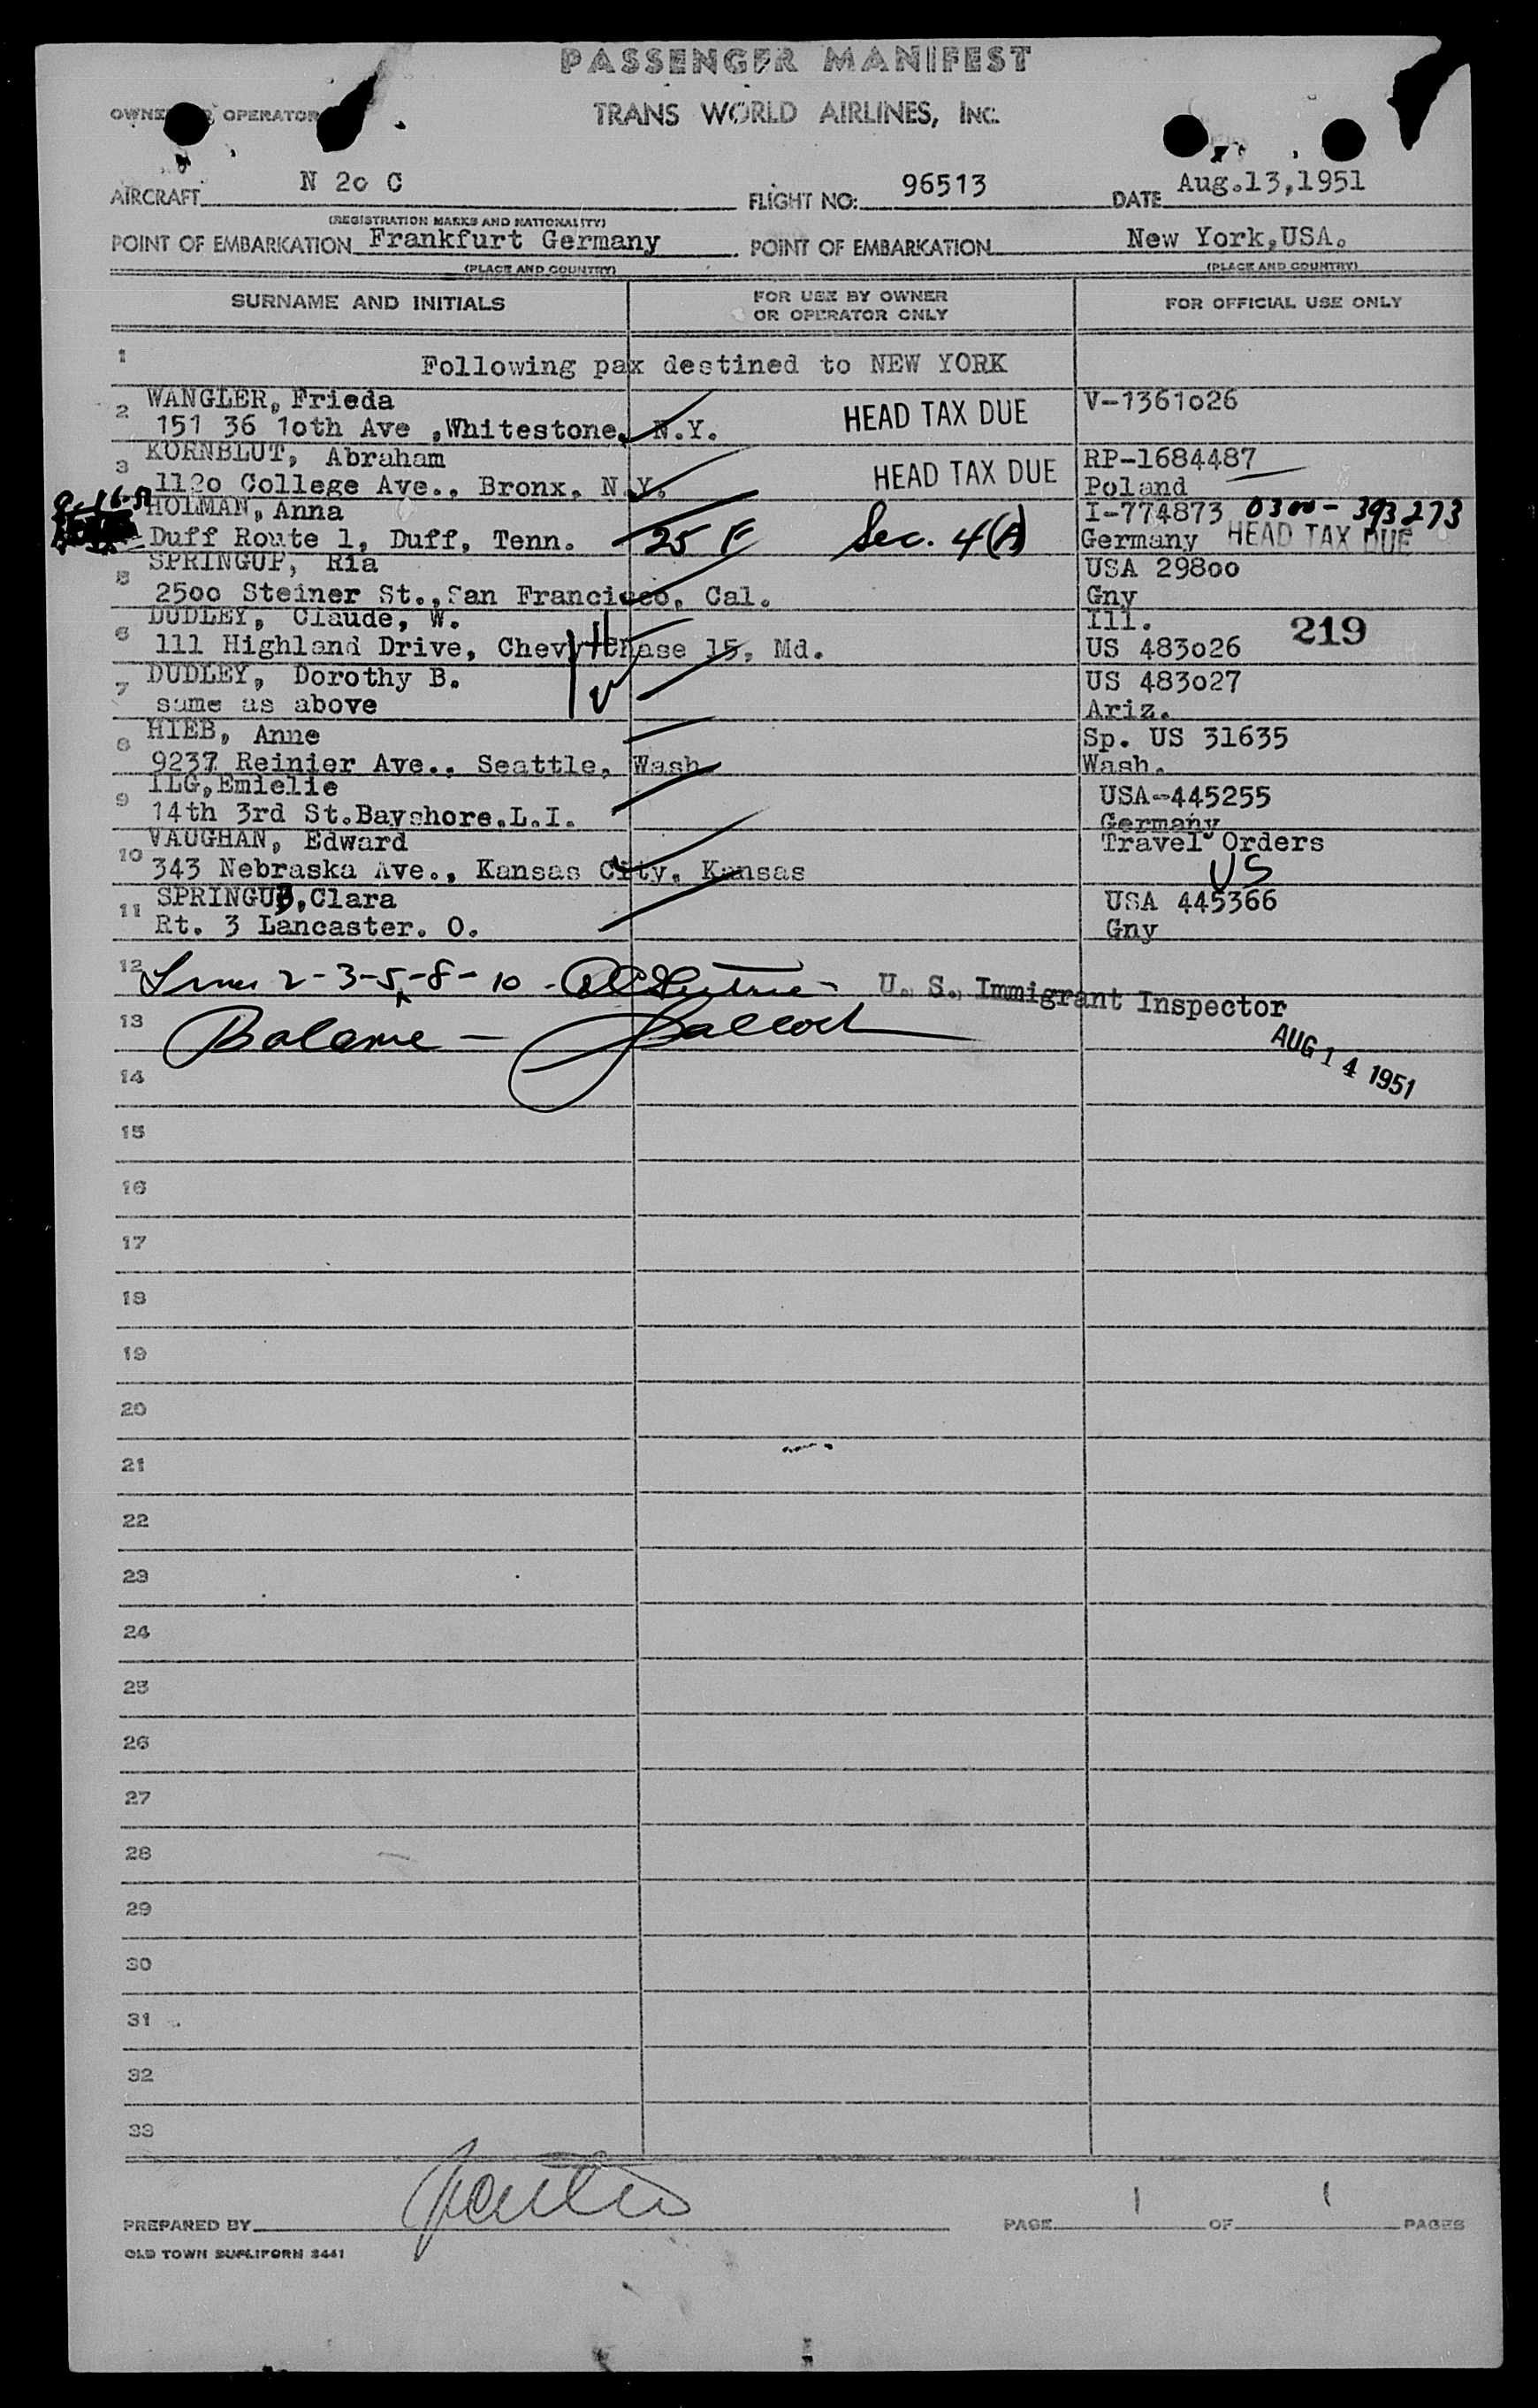 PASSENGER MANIFEST
OWNER OR OPERATOR TRANS WORLD AIRLINES, INC.
AIRCRAFT N 2o C FLIGHT NO: 96513 DATE Aug.13,1951
(REGISTRATION MARKS AND NATIONALITY)
POINT OF EMBARKATION Frankfurt Germany POINT OF EMBARKATION New York,USA.
(PLACE AND COUNTRY) (PLACE AND COUNTRY)
SURNAME AND INITIALS FOR USE BY OWNER OR OPERATOR ONLY FOR OFFICIAL USE ONLY
1 Following pax destined to NEW YORK
2 WANGLER, Frieda HEAD TAX DUE V-1361o26
151 36 1oth Ave ,Whitestone, N.Y.
3 KORNBLUT, Abraham HEAD TAX DUE RP-1684487
112o College Ave., Bronx, N.Y. Poland
HOLMAN, Anna I-774873 0300-393273
Duff Route 1, Duff, Tenn. 25 F Sec. 4(A) Germany HEAD TAX DUE
5 SPRINGUP, Ria USA 298oo
25oo Steiner St.,San Francisco, Cal. Gny
6 DUDLEY, Claude, W. Ill. 219
111 Highland Drive, Chevy Chase 15, Md. US 483o26
7 DUDLEY, Dorothy B. US 483o27
same as above Ariz.
8 HIEB, Anne Sp. US 31635
9237 Reinier Ave., Seattle, Wash Wash.
9 ILG,Emielie USA-445255
14th 3rd St.Bayshore.L.I. Germany
10 VAUGHAN, Edward Travel Orders
343 Nebraska Ave., Kansas City, Kansas US
11 SPRINGUB,Clara USA 445366
Rt. 3 Lancaster. O. Gny
12 Lines 2-3-5-8-10 - U. S. Immigrant Inspector
13 Balance -
AUG 14 1951
14
15
16
17
18
19
20
21
22
23
24
25
26
27
28
29
30
31
32
33
PREPARED BY PAGE 1 OF 1 PAGES
OLD TOWN DUPLIFORM 3441